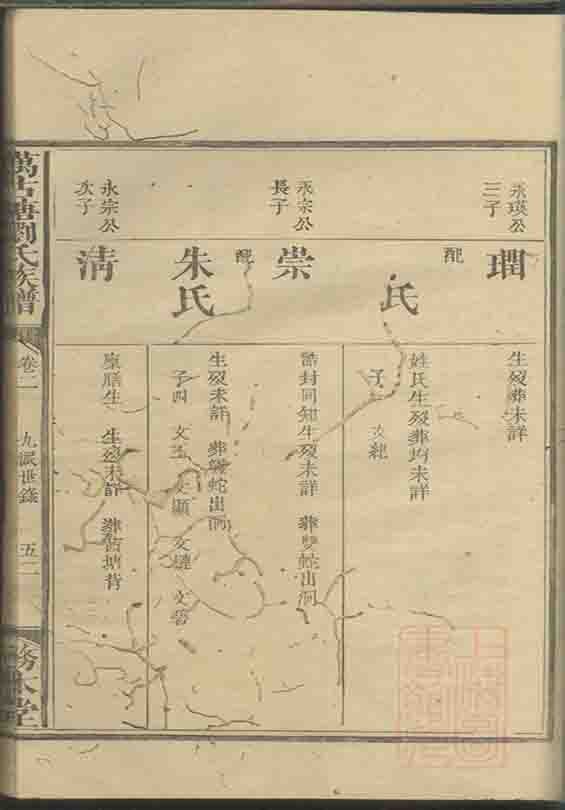 永瑛公
三子
璭
生歿葬未詳
配
氏
姓氏生歿葬均未詳
子 文紀
永宗公
長子
崇
誥封同知生歿未詳 葬雙蛇出洞
配
朱氏
生歿未詳 葬雙蛇出洞
子四 文 文顯 文 文
永宗公
次子
清
廩膳生 生歿未詳 葬古塘背
萬古塘劉氏族譜
卷二
九派世錄
五二
務本堂
上海圖書館藏